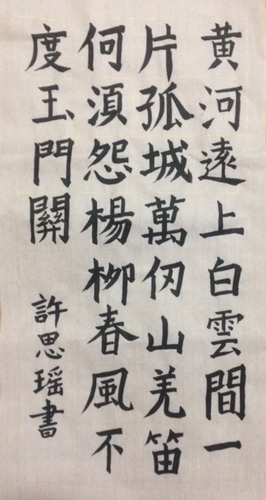 黄河遠上白雲間一
片孤城萬仞山羌笛
何須怨楊柳春風不
度玉門關
許思瑶書